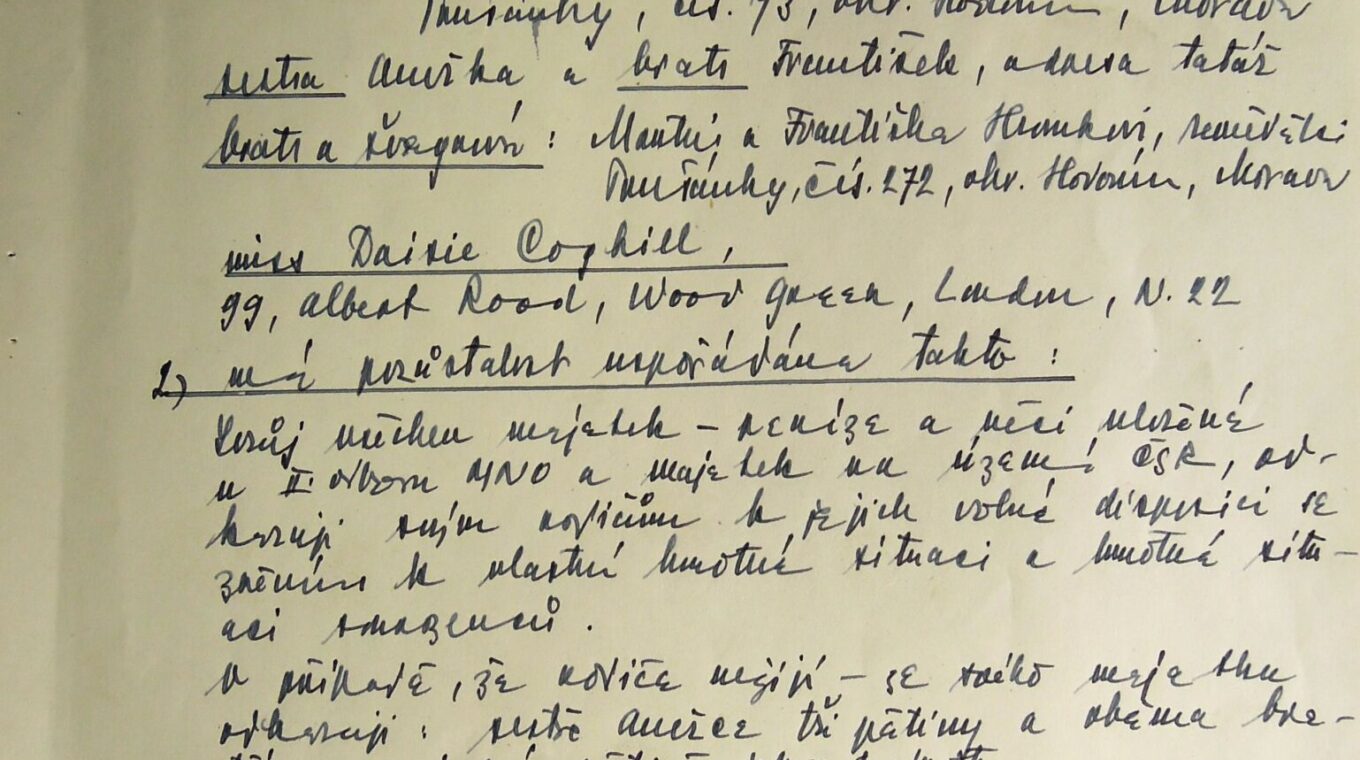 Prušánky, čís. 73, okr. Hodonín, Morava
sestra Anežka a bratr František, adresa tatáž
bratr a švagrová: Matěj a Františka Hrankovi, zemědělci
Prušánky, čís. 272, okr. Hodonín, Morava
miss Daisie Coghill,
99, Albert Road, Wood Green, London, N. 22
2) má pozůstalost uspořádána takto:
Svůj všechen majetek - peníze a věci uložené
u II. odboru MNO a majetek na území ČSR, od-
kazuji svým rodičům k jejich volné disposici se
zřením k vlastní hmotné situaci a hmotné situ-
aci sourozenců.
V případě, že rodiče nežijí - ze svého majetku
odkazuji: sestře Anežce tři pětiny a oběma bra-